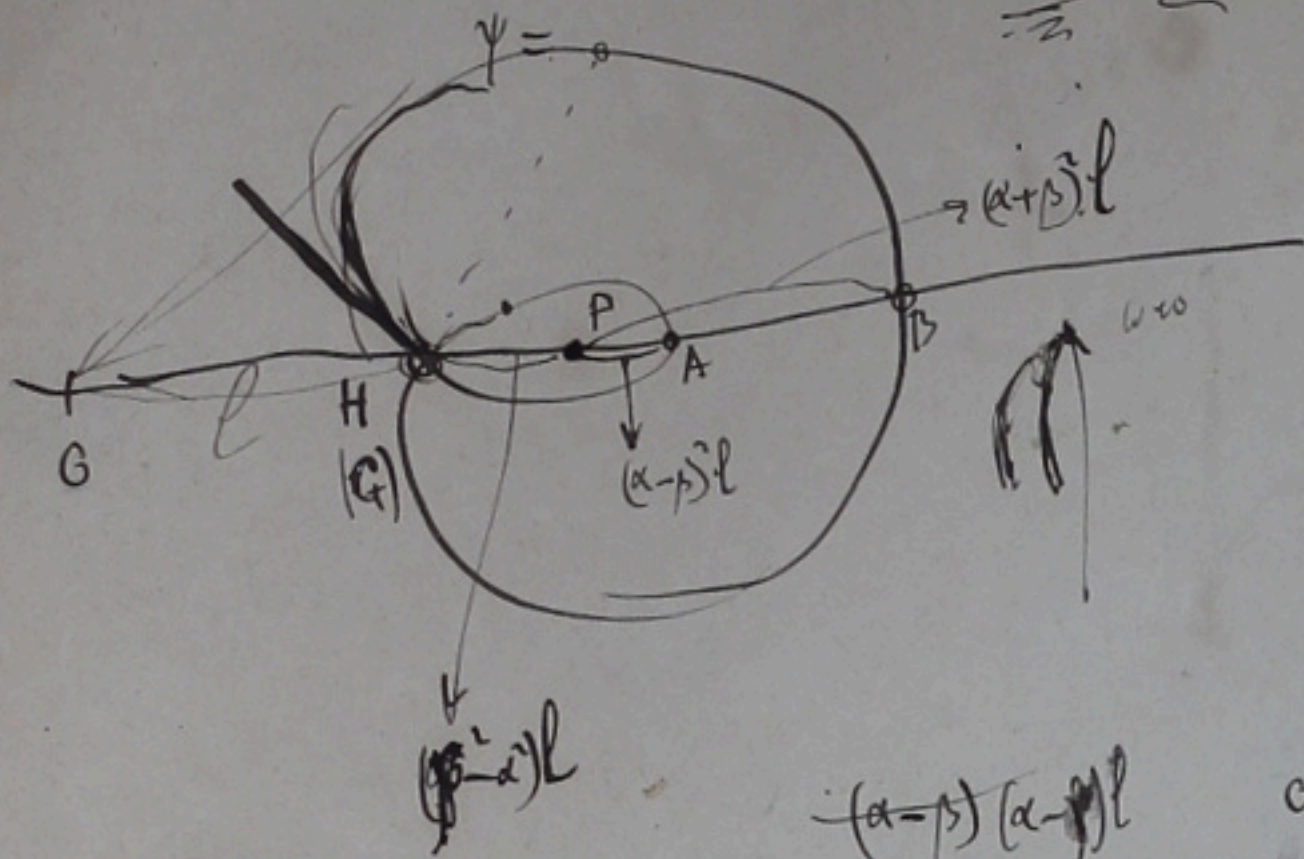 ψ =
(α+β)² l
P
A
B
G
l
H
(G)
(α-β)² l
(β²-α²) l
(α-β) (α-β) l